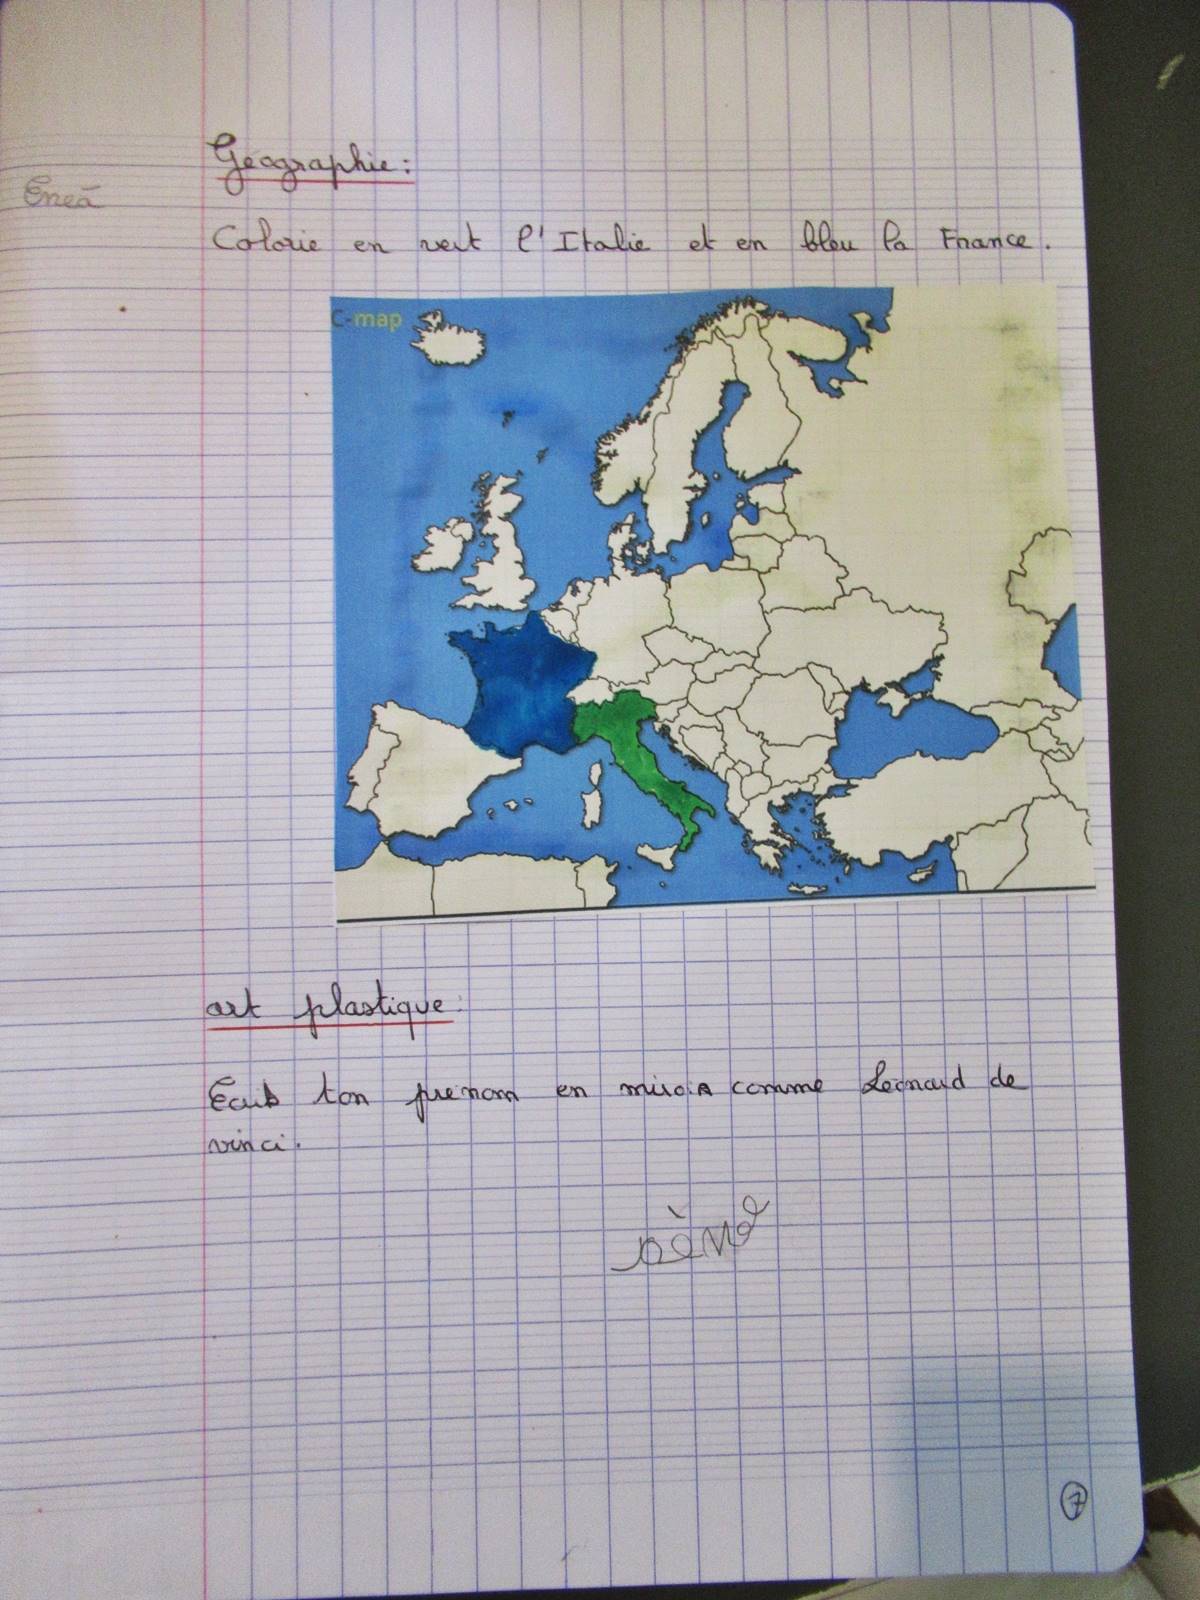 Géographie:
Enea
Colorie en vert l'Italie et en bleu la France.
C-map
art plastique:
Ecris ton prenom en miroir comme Léonard de
vinci.
7